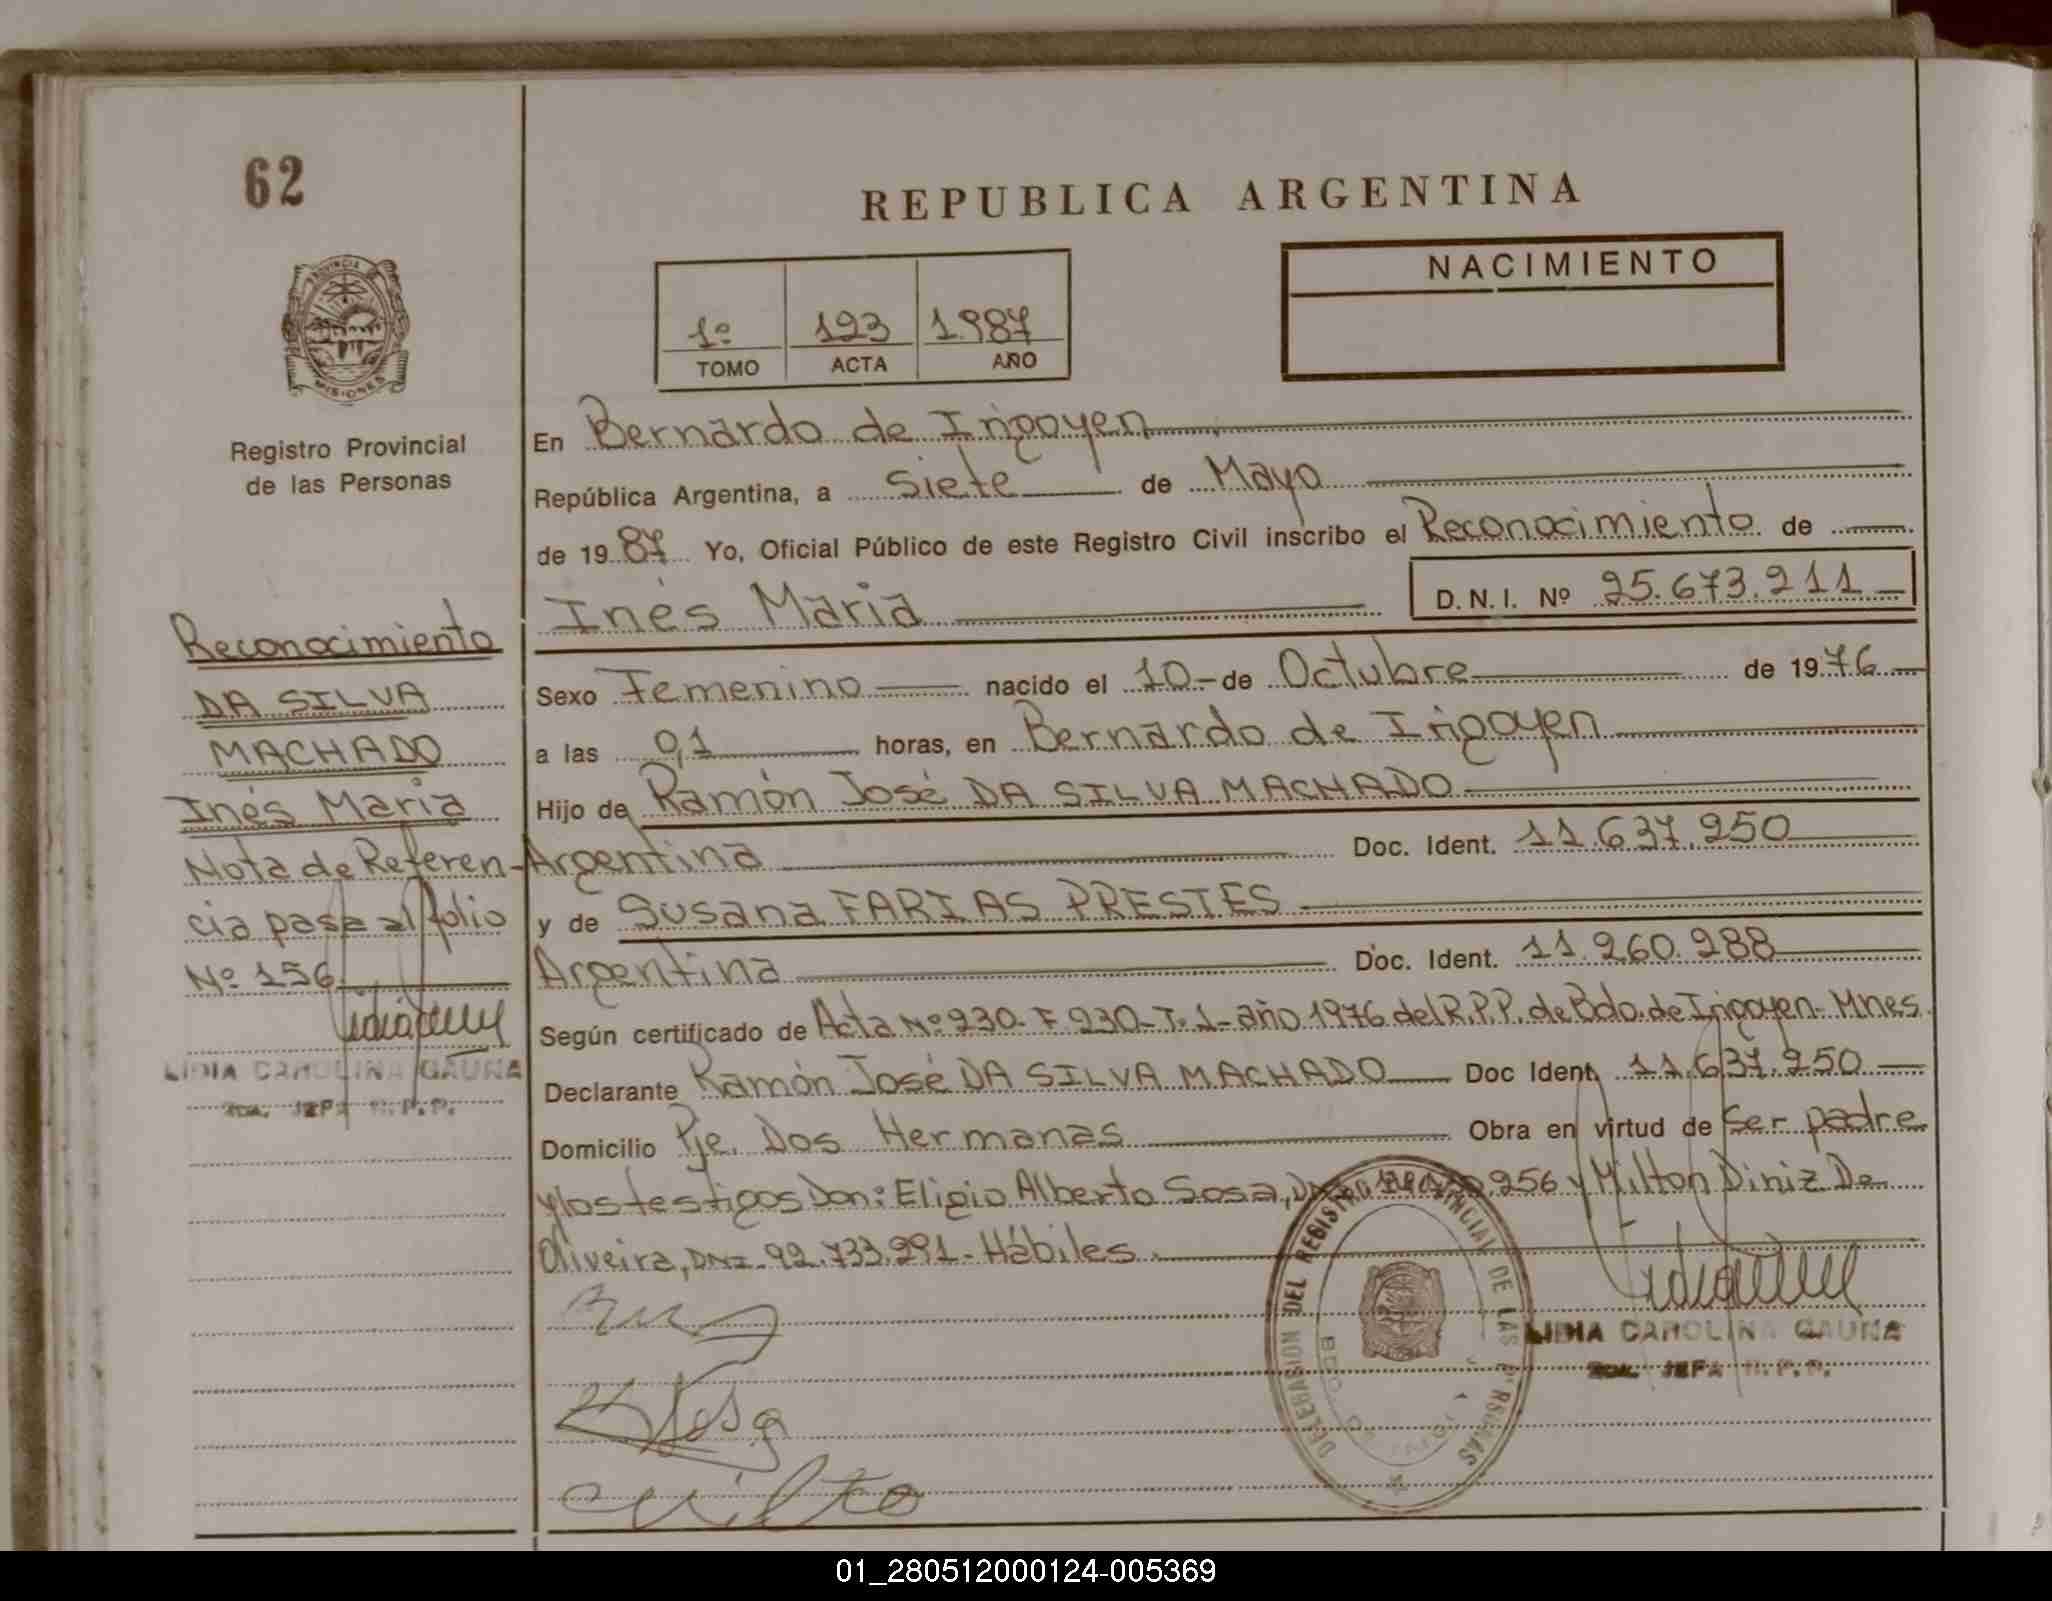 62
REPUBLICA ARGENTINA
NACIMIENTO
1º 123 1.987
TOMO ACTA AÑO
PROVINCIA
MISIONES
Registro Provincial
de las Personas
Reconocimiento
DA SILVA
MACHADO
Inés Maria
Nota de Referen-
cia pasa al folio
Nº 156
LIDIA CAROLINA GAUNA
2DA. JEFA R.P.P.
En Bernardo de Irigoyen
República Argentina, a Siete de Mayo
de 1987 Yo, Oficial Público de este Registro Civil inscribo el Reconocimiento de
Inés Maria D.N.I. Nº 25.673.211
Sexo Femenino nacido el 10 de Octubre de 1976
a las 0,1 horas, en Bernardo de Irigoyen
Hijo de Ramón José DA SILVA MACHADO
Argentina Doc. Ident. 11.637.250
y de Susana FARIAS PRESTES
Argentina Doc. Ident. 11.260.288
Según certificado de Acta Nº 230-F 230-T.1-año 1976 del R.P.P. de Bdo. de Irigoyen-Mnes.
Declarante Ramón José DA SILVA MACHADO Doc Ident. 11.637.250
Domicilio Pje. Dos Hermanas Obra en virtud de Ser padre
y los testigos Don: Eligio Alberto Sosa, 256 y Milton Diniz De
Oliveira, DNI. 92.733.291-Hábiles.
DELEGASION DEL REGISTRO PROVINCIAL DE LAS PERSONAS
LIDIA CAROLINA GAUNA
2DA. JEFA R.P.P.
Sosa
Milto
01_280512000124-005369